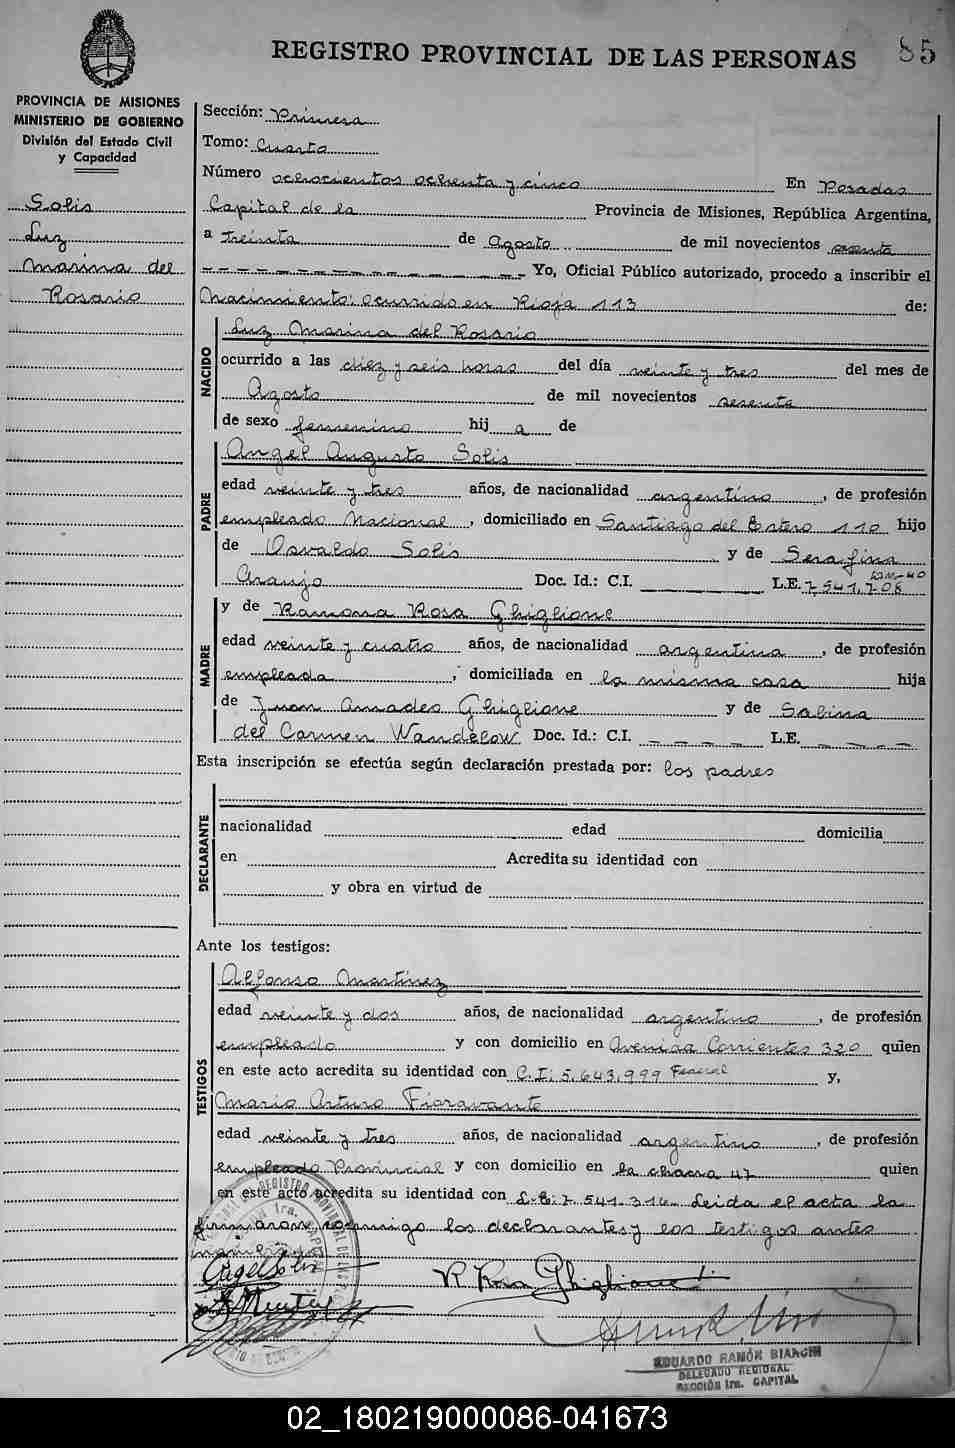 REGISTRO PROVINCIAL DE LAS PERSONAS 85
PROVINCIA DE MISIONES
MINISTERIO DE GOBIERNO
División del Estado Civil
y Capacidad
Solis
Luz
Marina del
Rosario
Sección: Primera
Tomo: Cuarto
Número ochocientos ochenta y cinco En Posadas
Capital de la Provincia de Misiones, República Argentina,
a treinta de Agosto de mil novecientos sesenta
Yo, Oficial Público autorizado, procedo a inscribir el
Nacimiento: ocurrido en Rioja 113 de:
NACIDO
Luz Marina del Rosario
ocurrido a las diez y seis horas del día veinte y tres del mes de
Agosto de mil novecientos sesenta
de sexo femenino hij a de
PADRE
Angel Augusto Solis
edad veinte y tres años, de nacionalidad argentino, de profesión
empleado Nacional, domiciliado en Santiago del Estero 110 hijo
de Osvaldo Solis y de Serafina
Araujo Doc. Id.: C.I. L.E. 7.541.708
MADRE
y de Ramona Rosa Ghiglione
edad veinte y cuatro años, de nacionalidad argentina, de profesión
empleada, domiciliada en la misma casa hija
de Juan Amadeo Ghiglione y de Sabina
del Carmen Wandelow Doc. Id.: C.I. L.E.
Esta inscripción se efectúa según declaración prestada por: los padres
DECLARANTE
nacionalidad edad domicilia
en Acredita su identidad con
y obra en virtud de
Ante los testigos:
TESTIGOS
Alfonso Martinez
edad veinte y dos años, de nacionalidad argentino, de profesión
empleado y con domicilio en Avenida Corrientes 320 quien
en este acto acredita su identidad con C.I: 5.643.999 Federal y,
Mario Arturo Fioravante
edad veinte y tres años, de nacionalidad argentino, de profesión
empleado Provincial y con domicilio en la chacra 47 quien
en este acto acredita su identidad con L.E. 7.541.314. Leida el acta la
firmaron conmigo los declarantes y los testigos antes
Angel Solis
R Rosa Ghiglione
EDUARDO RAMÓN BIANCHI
DELEGADO REGIONAL
SECCIÓN 1ra. CAPITAL
02_180219000086-041673